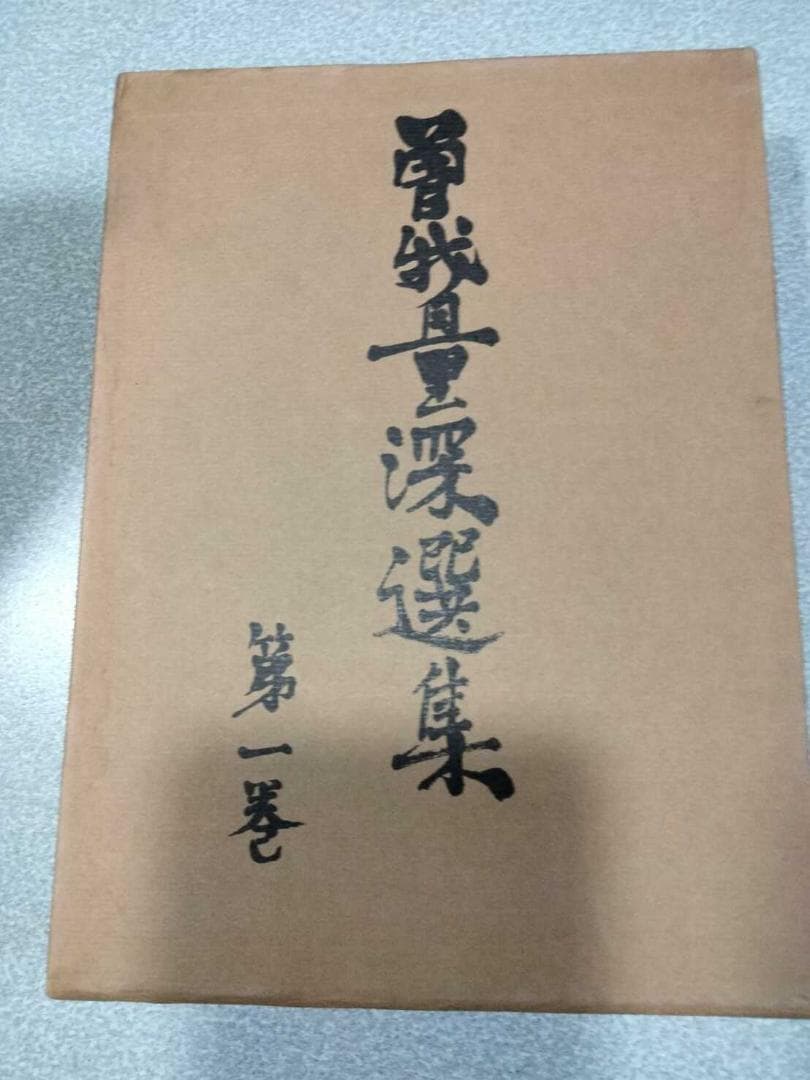 曽我量深選集
第一巻